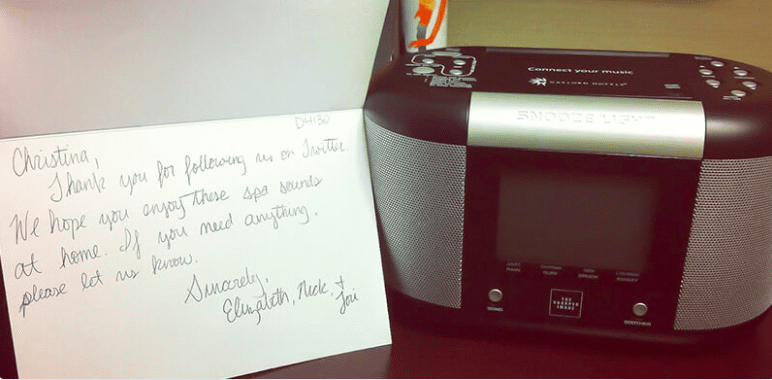 D4130
Christina,
Thank you for following us on Twitter.
We hope you enjoy these spa sounds
at home. If you need anything,
please let us know.
Sincerely,
Elizabeth, Nick, &
Jori
Connect your music
GAYLORD HOTELS
SNOOZE LIGHT
THE
SHARPER
IMAGE